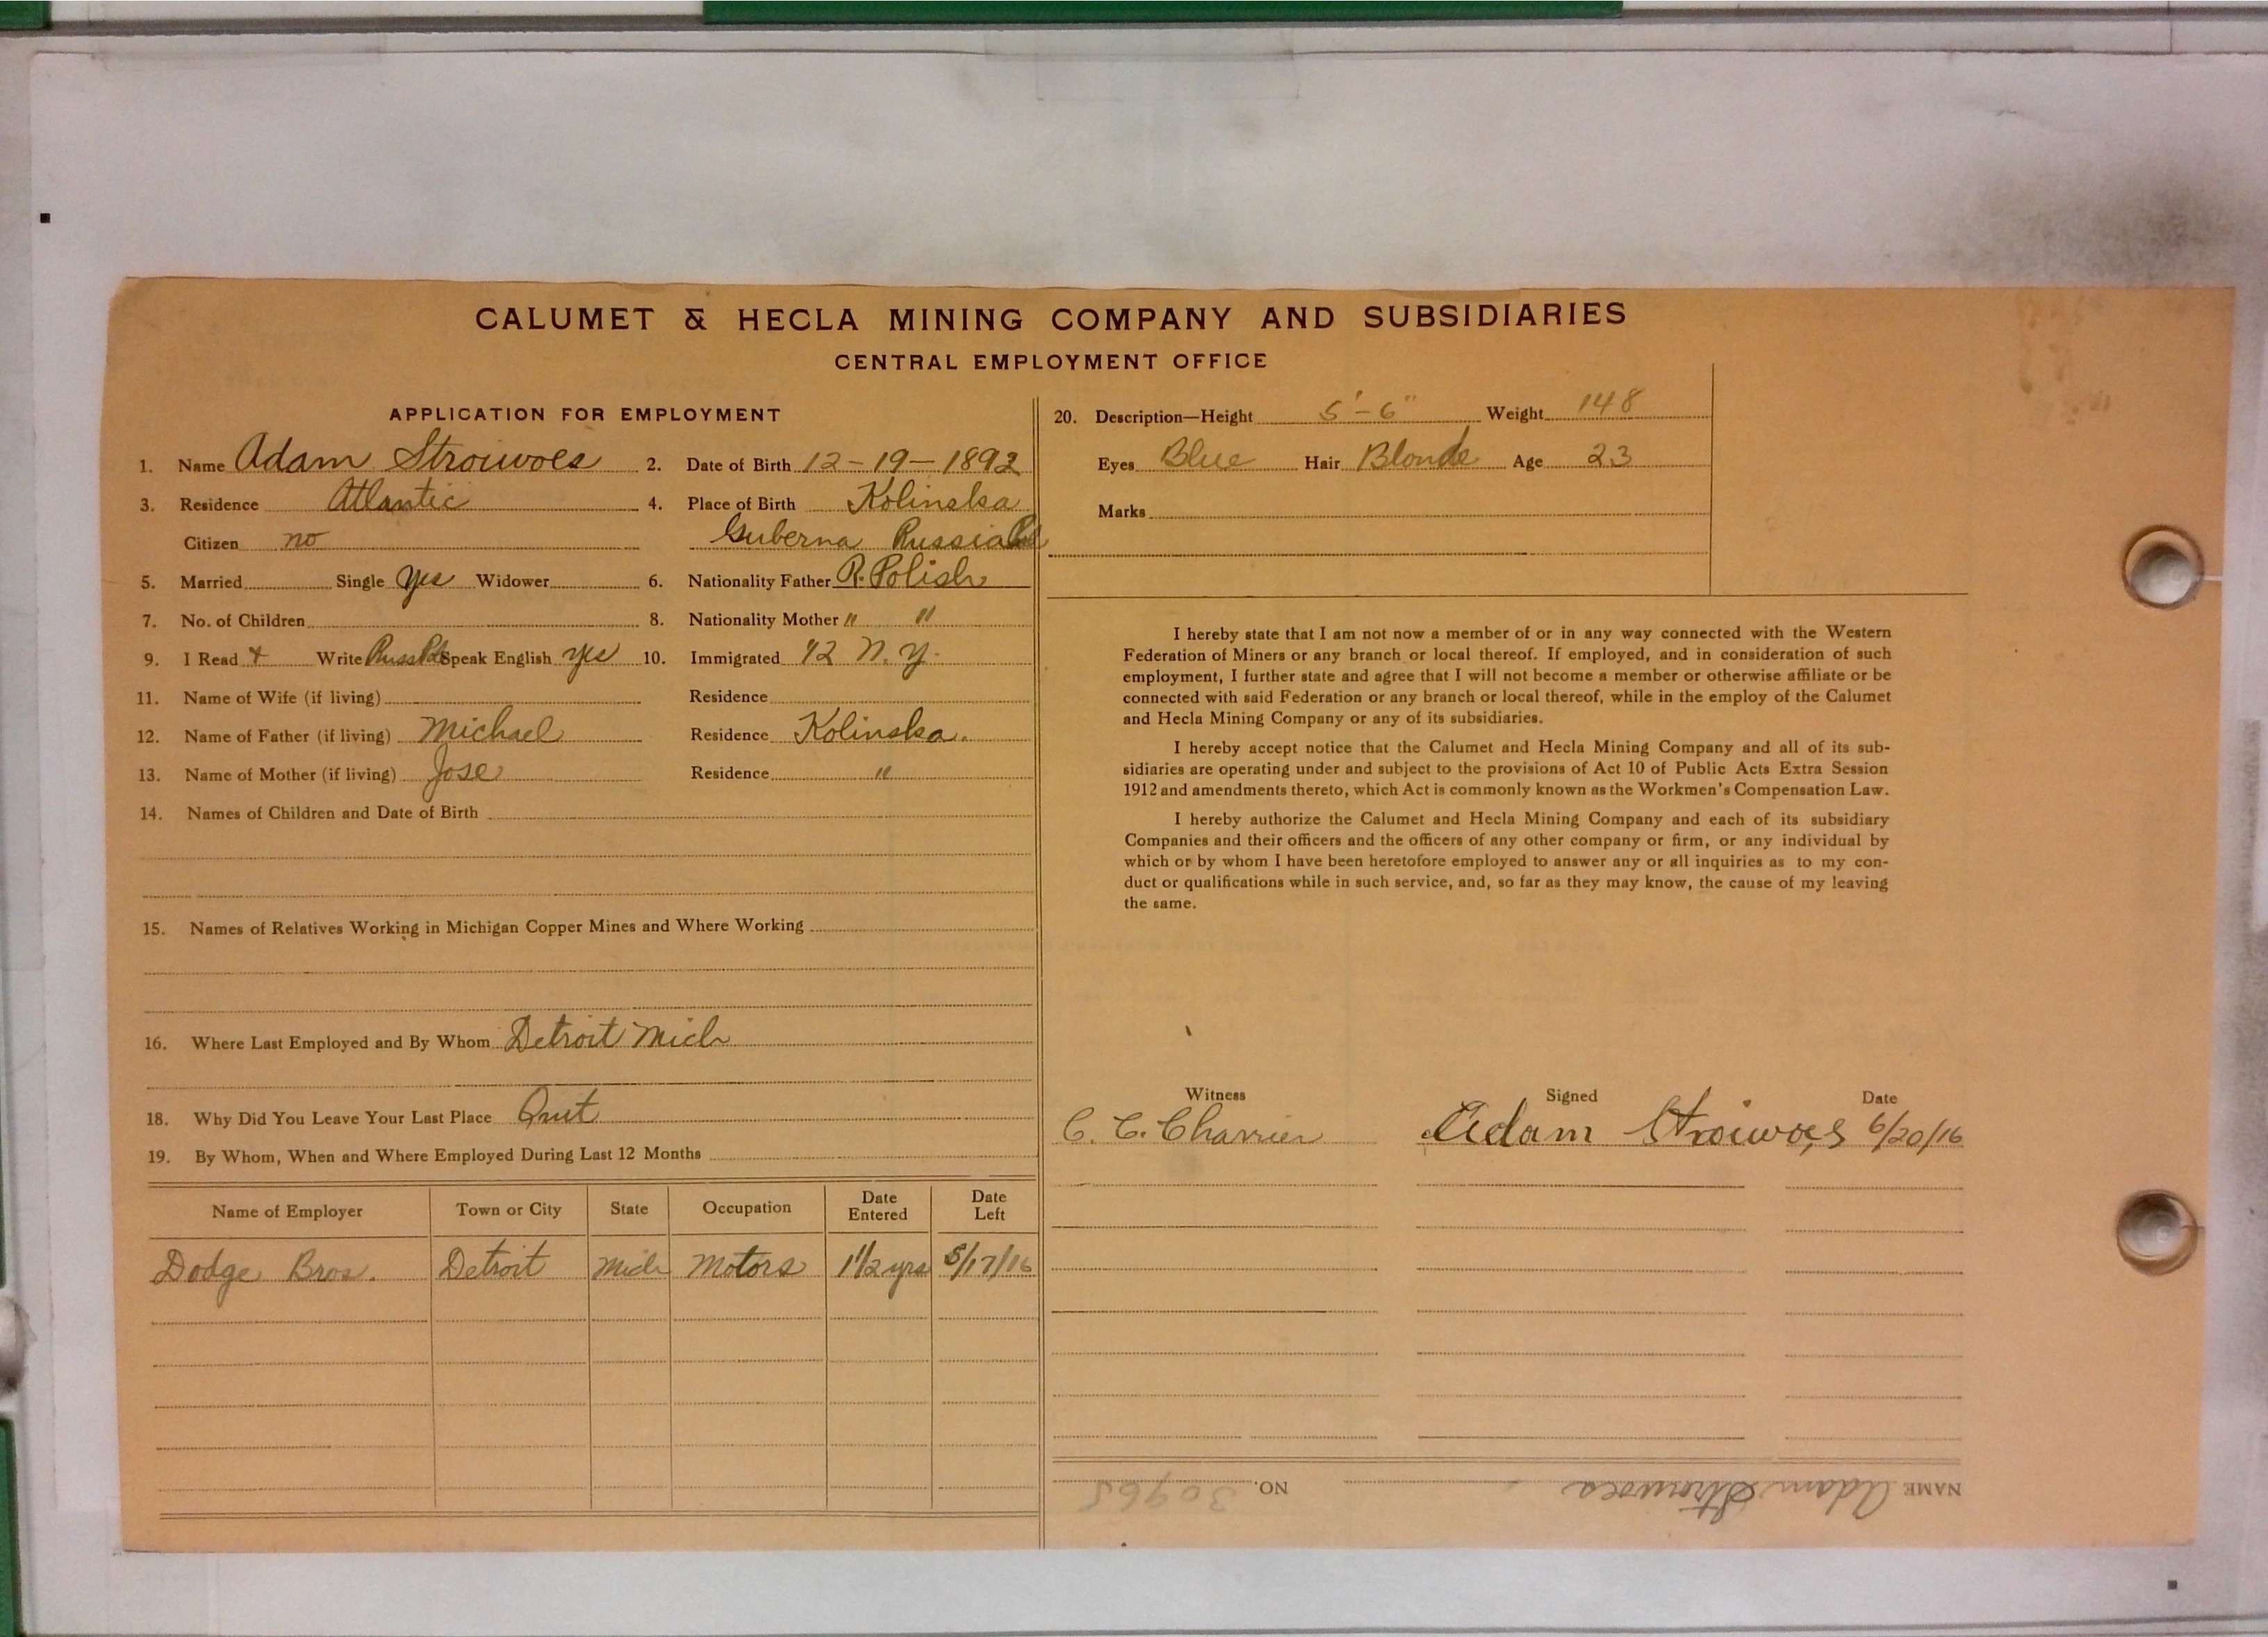 CALUMET & HECLA MINING COMPANY AND SUBSIDIARIES
CENTRAL EMPLOYMENT OFFICE
APPLICATION FOR EMPLOYMENT
1. Name Adam Stroiwoes 2. Date of Birth 12-19-1892
3. Residence Atlantic 4. Place of Birth Kolinska
Citizen no Guberna Russia Pol
5. Married Single yes Widower 6. Nationality Father R. Polish
7. No. of Children 8. Nationality Mother " "
9. I Read + Write Russ Pol Speak English yes 10. Immigrated '12 N.Y.
11. Name of Wife (if living) Residence
12. Name of Father (if living) Michael Residence Kolinska.
13. Name of Mother (if living) Jose Residence "
14. Names of Children and Date of Birth
15. Names of Relatives Working in Michigan Copper Mines and Where Working
16. Where Last Employed and By Whom Detroit Mich
18. Why Did You Leave Your Last Place Quit
19. By Whom, When and Where Employed During Last 12 Months
Name of Employer Town or City State Occupation Date Entered Date Left
Dodge Bros. Detroit Mich Motors 1 1/2 yrs 5/17/16
20. Description—Height 5'-6" Weight 148
Eyes Blue Hair Blonde Age 23
Marks
I hereby state that I am not now a member of or in any way connected with the Western
Federation of Miners or any branch or local thereof. If employed, and in consideration of such
employment, I further state and agree that I will not become a member or otherwise affiliate or be
connected with said Federation or any branch or local thereof, while in the employ of the Calumet
and Hecla Mining Company or any of its subsidiaries.
I hereby accept notice that the Calumet and Hecla Mining Company and all of its sub-
sidiaries are operating under and subject to the provisions of Act 10 of Public Acts Extra Session
1912 and amendments thereto, which Act is commonly known as the Workmen's Compensation Law.
I hereby authorize the Calumet and Hecla Mining Company and each of its subsidiary
Companies and their officers and the officers of any other company or firm, or any individual by
which or by whom I have been heretofore employed to answer any or all inquiries as to my con-
duct or qualifications while in such service, and, so far as they may know, the cause of my leaving
the same.
Witness Signed Date
C. C. Charrier Adam Stroiwoes 6/20/16
NAME Adam Stroiwoes NO. 30965